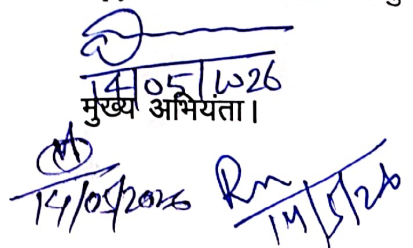 14/05/2026
मुख्य अभियंता।
14/05/2026
14/5/26